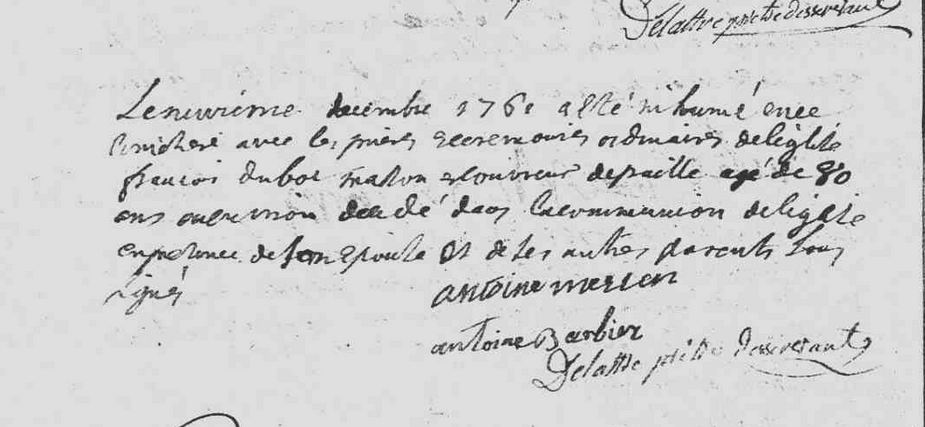 Delattre prêtre desservant
Le neuvieme decembre 1761 a eté inhumé en ce
cimetiere avec les prieres et ceremonies ordinaires de leglise
francois dubos masson et couvreur de paille agé de 80
ans ou environ decedé dans la communion de leglise
en presence de son epouse et de ses autres parents sous
signés
antoine merlen
antoine Barbier
Delattre prêtre desservant